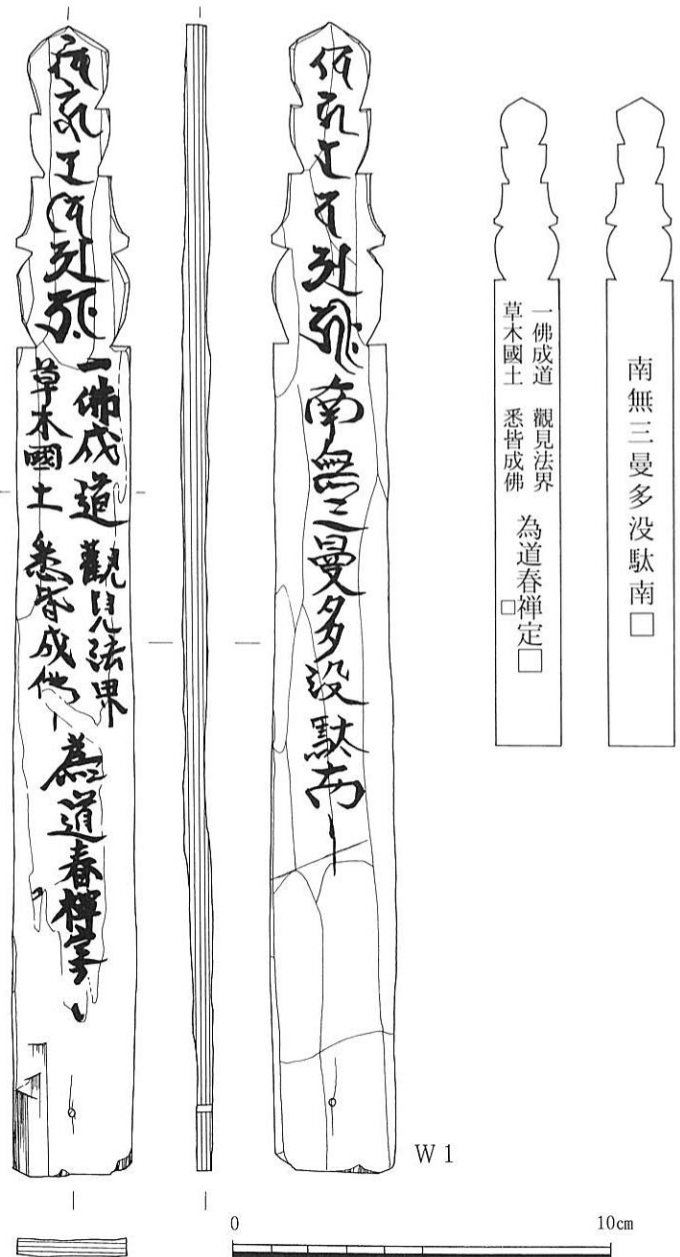 一佛成道 觀見法界
草木國土 悉皆成佛
為道春禅定
南無三曼多没駄南
一佛成道 觀見法界
草木國土 悉皆成佛
為道春禅定□
□
南無三曼多没駄南□
W 1
0 10cm